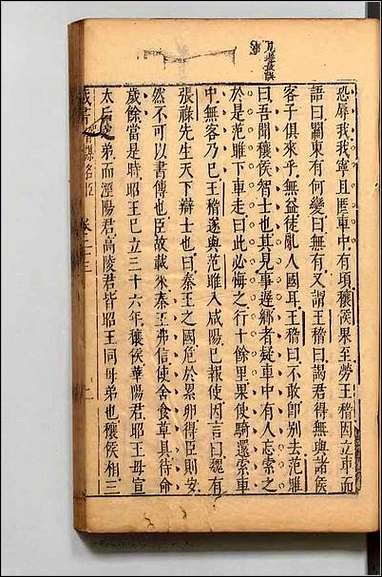 恐辱我我寧且匿車中有頃穰侯果至勞王稽因立車而
語曰關東有何變曰無有又謂王稽曰謁君得無與諸侯
客子俱來乎無益徒亂人國耳王稽曰不敢卽別去范雎
曰吾聞穰侯智士也其見事遲鄉者疑車中有人忘索之
於是范雎下車走曰此必悔之行十餘里果使騎還索車
中無客乃已王稽遂與范雎入咸陽已報使因言曰魏有
張祿先生天下辯士也曰秦王之國危於累卵得臣則安
然不可以書傳也臣故載來秦王弗信使舍食草具待命
歲餘當是時昭王已立三十六年穰侯華陽君昭王母宣
太后之弟而涇陽君高陵君皆昭王同母弟也穰侯相三
藏書 謀名臣 卷